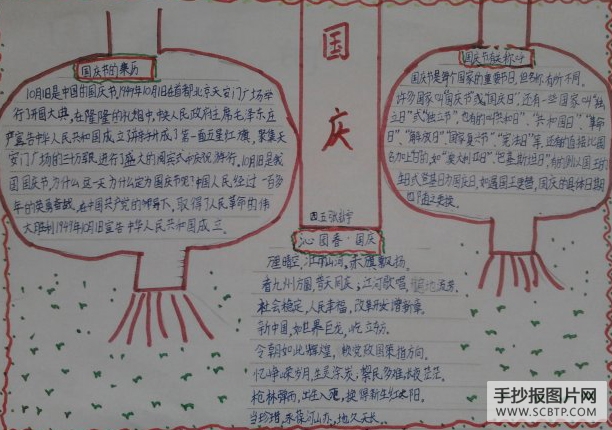 国庆节的来历
10月1日是中国的国庆节,1949年10月1日在首都北京天安门广场举
行了开国大典,在隆隆的礼炮中,中央人民政府主席毛泽东庄
严宣告中华人民共和国成立,并升起了第一面五星红旗,聚集天
安门广场的三十万军民进行了盛大的阅兵式和庆祝游行。10月1日是我
国国庆节,为什么这一天为什么定为国庆节呢?中国人民经过一百多
年的英勇奋战,在中国共产党的领导下,取得了人民革命的伟
大胜利1949年10月1日宣告中华人民共和国成立。
国庆
四五
国庆节有关称呼
国庆节是每个国家的重要节日,但名称有所不同。
许多国家叫"国庆节"或"国庆日",还有一些国家叫"独
立日"或"独立节",也有的叫"共和日"、"共和国日"、"革命
日"、"解放日""国家复兴节"、"宪法日"等,还有直接以国
名加上"日"的,如"澳大利亚日""巴基斯坦日",有的则以国王的
生日或登基日为国庆日,如遇国王更替,国庆的具体日期
也随之更换。
沁园春·国庆
赤旗飘扬。
看九州方圆,普天同庆;江河歌唱,
社会稳定,人民幸福,改革开放谱新章。
新中国,如世界巨龙,屹立东方。
令朝如此辉煌,赖党政国策指方向。
忆峥嵘岁月,生灵涂炭,黎民多难,长夜茫茫。
枪林弹雨,出生入死,换得新生红太阳。
当珍惜,永葆江山,地久天长。
手抄报图片网
WWW.SCBTP.COM